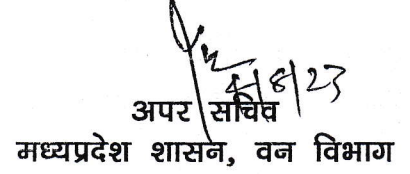 4/8/23
अपर सचिव
मध्यप्रदेश शासन, वन विभाग